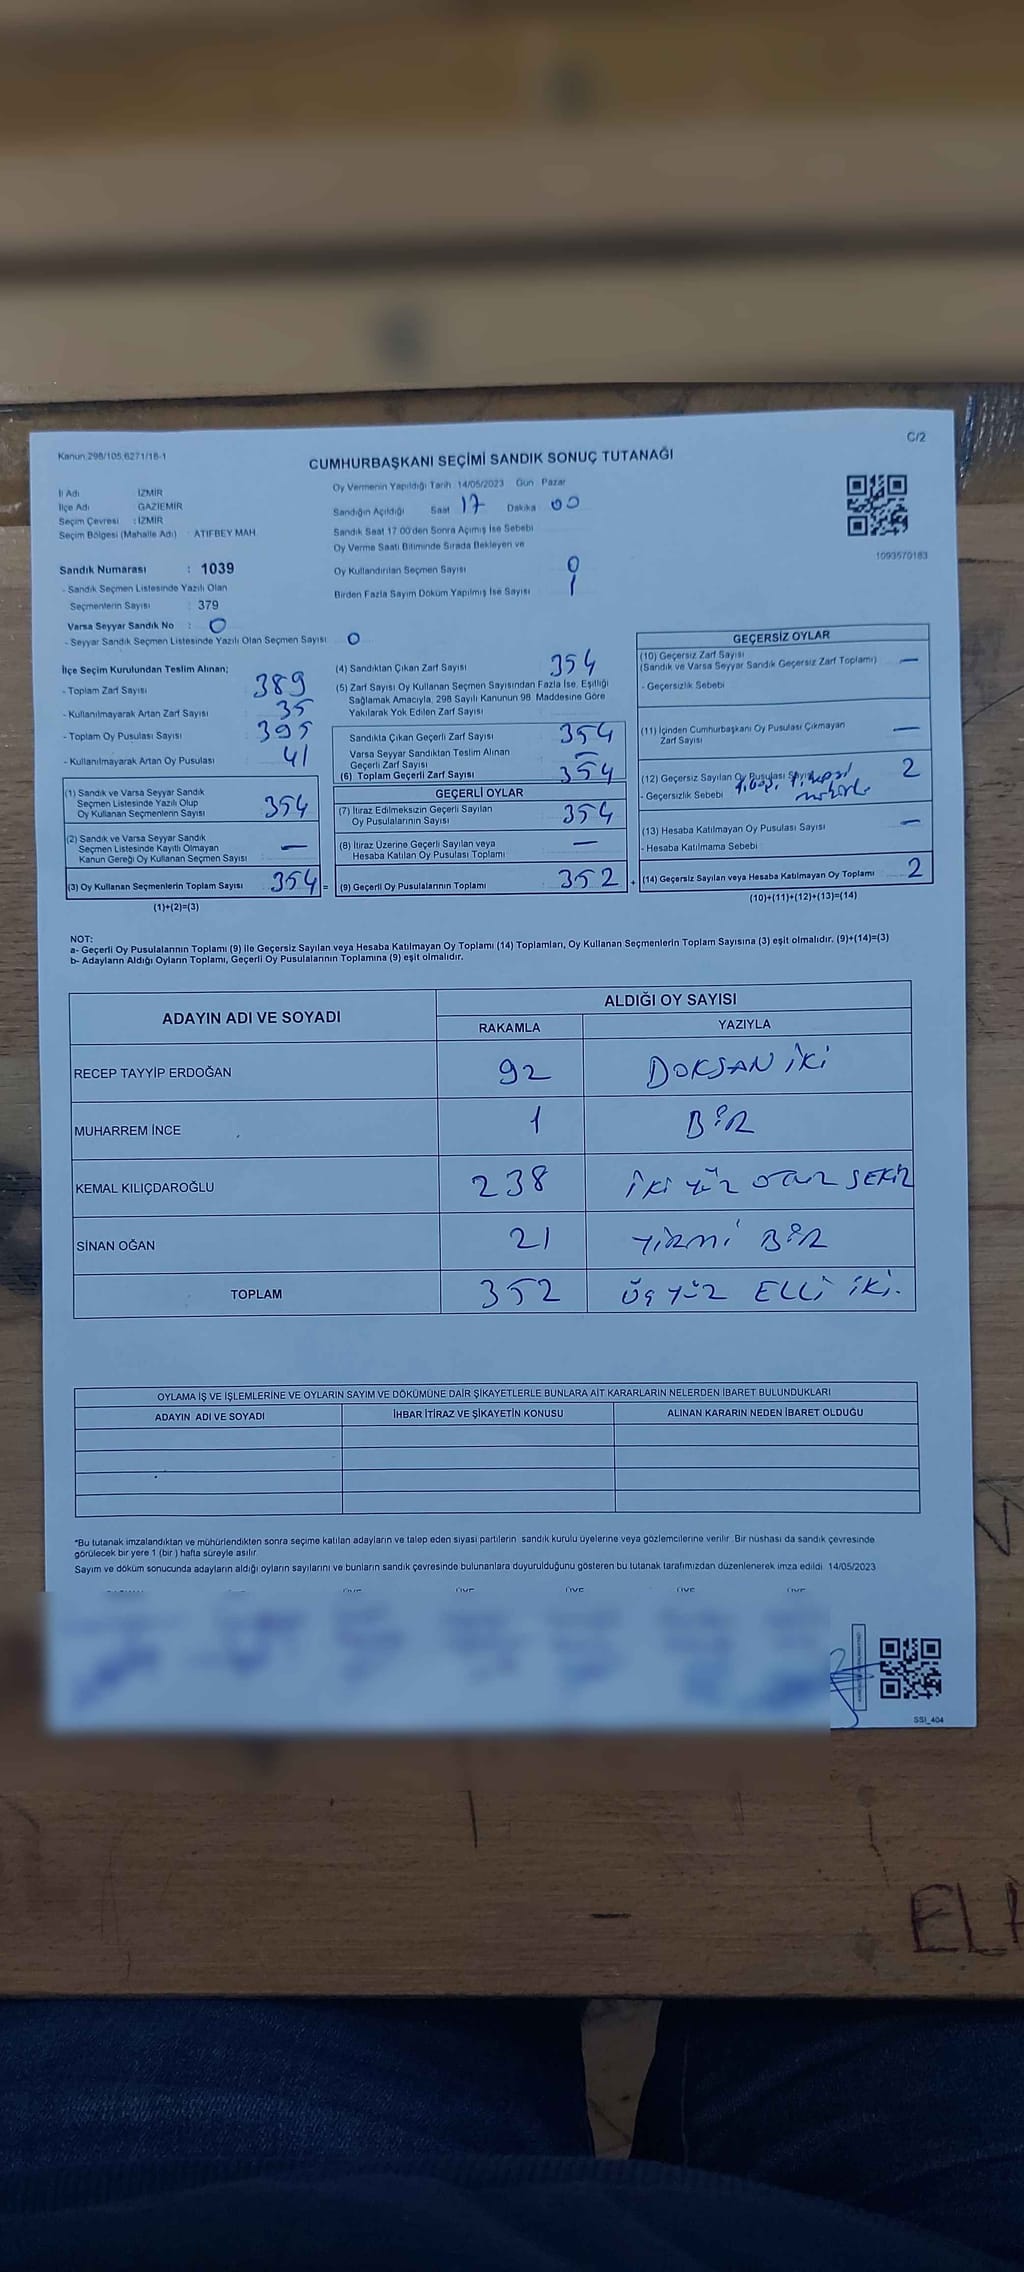 C/2
Kanun:298/105,6271/18-1
CUMHURBAŞKANI SEÇİMİ SANDIK SONUÇ TUTANAĞI
İl Adı : İZMİR
İlçe Adı : GAZİEMİR
Seçim Çevresi : İZMİR
Seçim Bölgesi (Mahalle Adı) : ATIFBEY MAH.
Oy Vermenin Yapıldığı Tarih: 14/05/2023 Gün: Pazar
Sandığın Açıldığı Saat 17 Dakika 00
Sandık Saat 17:00'den Sonra Açılmış İse Sebebi
Oy Verme Saati Bitiminde Sırada Bekleyen ve
Oy Kullandırılan Seçmen Sayısı 0
Birden Fazla Sayım Döküm Yapılmış İse Sayısı 1
1093570183
Sandık Numarası : 1039
- Sandık Seçmen Listesinde Yazılı Olan
Seçmenlerin Sayısı : 379
Varsa Seyyar Sandık No : 0
- Seyyar Sandık Seçmen Listesinde Yazılı Olan Seçmen Sayısı 0
İlçe Seçim Kurulundan Teslim Alınan;
- Toplam Zarf Sayısı 389
- Kullanılmayarak Artan Zarf Sayısı 35
- Toplam Oy Pusulası Sayısı 395
- Kullanılmayarak Artan Oy Pusulası 41
(1) Sandık ve Varsa Seyyar Sandık
Seçmen Listesinde Yazılı Olup
Oy Kullanan Seçmenlerin Sayısı 354
(2) Sandık ve Varsa Seyyar Sandık
Seçmen Listesinde Kayıtlı Olmayan
Kanun Gereği Oy Kullanan Seçmen Sayısı —
(3) Oy Kullanan Seçmenlerin Toplam Sayısı 354 =
(1)+(2)=(3)
(4) Sandıktan Çıkan Zarf Sayısı 354
(5) Zarf Sayısı Oy Kullanan Seçmen Sayısından Fazla İse, Eşitliği
Sağlamak Amacıyla, 298 Sayılı Kanunun 98. Maddesine Göre
Yakılarak Yok Edilen Zarf Sayısı
Sandıkta Çıkan Geçerli Zarf Sayısı 354
Varsa Seyyar Sandıktan Teslim Alınan
Geçerli Zarf Sayısı —
(6) Toplam Geçerli Zarf Sayısı 354
GEÇERLİ OYLAR
(7) İtiraz Edilmeksizin Geçerli Sayılan
Oy Pusulalarının Sayısı 354
(8) İtiraz Üzerine Geçerli Sayılan veya
Hesaba Katılan Oy Pusulası Toplamı —
(9) Geçerli Oy Pusulalarının Toplamı 352 +
GEÇERSİZ OYLAR
(10) Geçersiz Zarf Sayısı
(Sandık ve Varsa Seyyar Sandık Geçersiz Zarf Toplamı) —
- Geçersizlik Sebebi
(11) İçinden Cumhurbaşkanı Oy Pusulası Çıkmayan
Zarf Sayısı —
(12) Geçersiz Sayılan Oy Pusulası Sayısı 2
- Geçersizlik Sebebi
(13) Hesaba Katılmayan Oy Pusulası Sayısı —
- Hesaba Katılmama Sebebi
(14) Geçersiz Sayılan veya Hesaba Katılmayan Oy Toplamı 2
(10)+(11)+(12)+(13)=(14)
NOT:
a- Geçerli Oy Pusulalarının Toplamı (9) ile Geçersiz Sayılan veya Hesaba Katılmayan Oy Toplamı (14) Toplamları, Oy Kullanan Seçmenlerin Toplam Sayısına (3) eşit olmalıdır. (9)+(14)=(3)
b- Adayların Aldığı Oyların Toplamı, Geçerli Oy Pusulalarının Toplamına (9) eşit olmalıdır.
ADAYIN ADI VE SOYADI
ALDIĞI OY SAYISI
RAKAMLA YAZIYLA
RECEP TAYYİP ERDOĞAN 92 DOKSAN İKİ
MUHARREM İNCE 1 BİR
KEMAL KILIÇDAROĞLU 238 İKİ YÜZ OTUZ SEKİZ
SİNAN OĞAN 21 YİRMİ BİR
TOPLAM 352 ÜÇ YÜZ ELLİ İKİ.
OYLAMA İŞ VE İŞLEMLERİNE VE OYLARIN SAYIM VE DÖKÜMÜNE DAİR ŞİKAYETLERLE BUNLARA AİT KARARLARIN NELERDEN İBARET BULUNDUKLARI
ADAYIN ADI VE SOYADI İHBAR İTİRAZ VE ŞİKAYETİN KONUSU ALINAN KARARIN NEDEN İBARET OLDUĞU
*Bu tutanak imzalandıktan ve mühürlendikten sonra seçime katılan adayların ve talep eden siyasi partilerin sandık kurulu üyelerine veya gözlemcilerine verilir. Bir nüshası da sandık çevresinde
görülecek bir yere 1 (bir) hafta süreyle asılır.
Sayım ve döküm sonucunda adayların aldığı oyların sayılarını ve bunların sandık çevresinde bulunanlara duyurulduğunu gösteren bu tutanak tarafımızdan düzenlenerek imza edildi. 14/05/2023
SSI_404